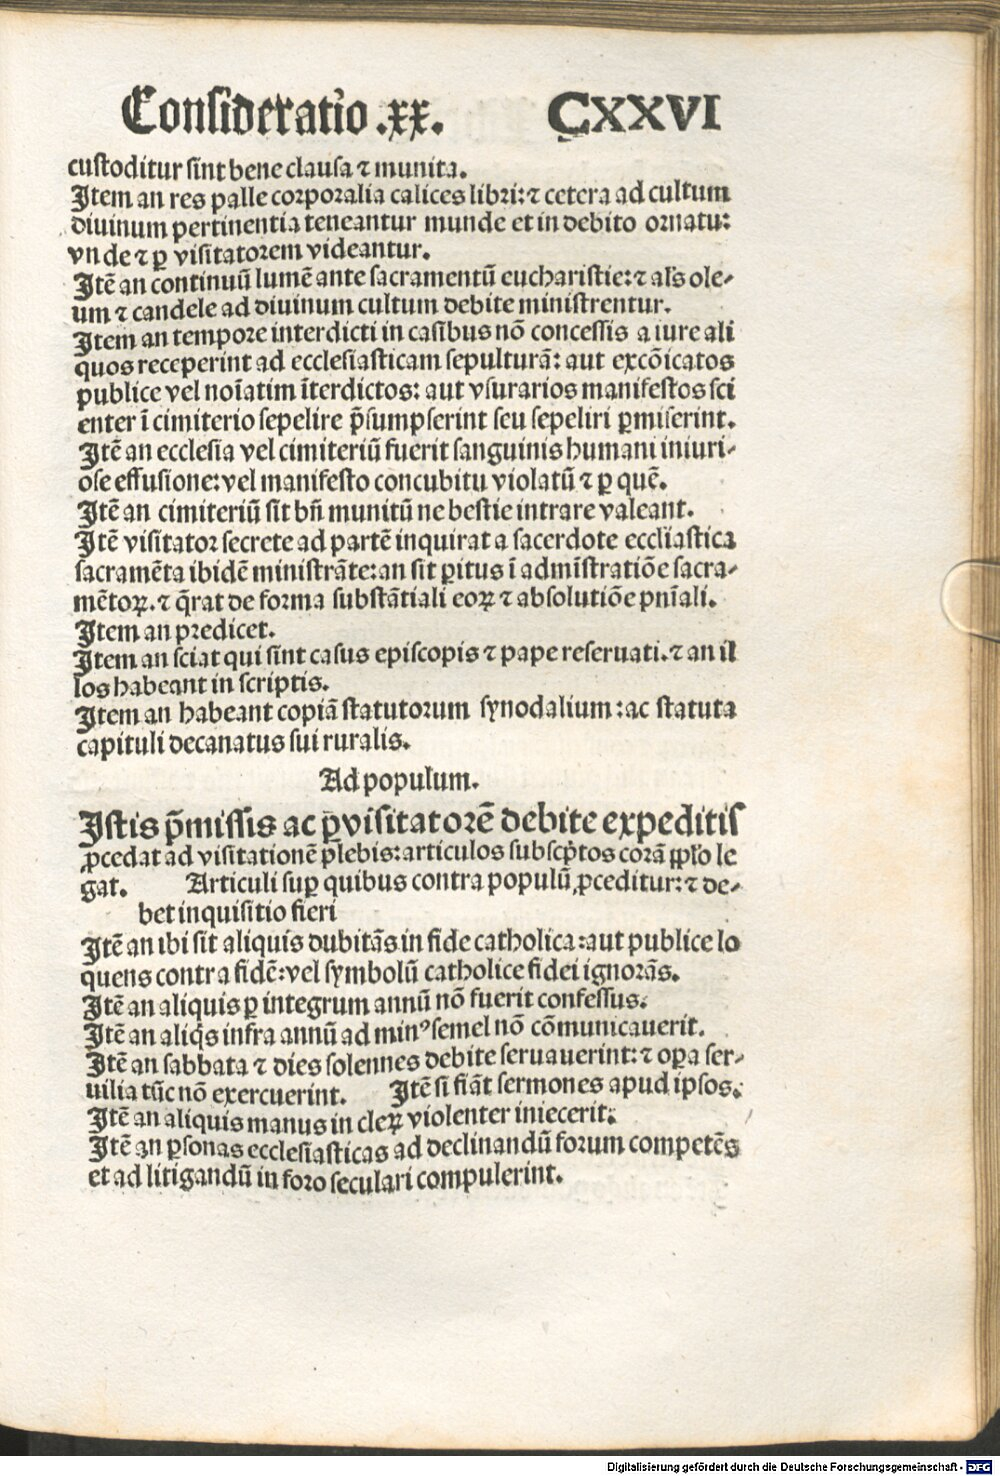 Consideratio .xx. CXXVI
custoditur sint bene clausa ⁊ munita.
Item an res palle corporalia calices libri: ⁊ cetera ad cultum
diuinum pertinentia teneantur munde et in debito ornatu:
vnde ⁊ ꝑ visitatorem videantur.
Itē an continuū lumē ante sacramentū eucharistie: ⁊ als ole-
um ⁊ candele ad diuinum cultum debite ministrentur.
Item an tempore interdicti in casibus nō concessis a iure ali
quos receperint ad ecclesiasticam sepulturā: aut excōicatos
publice vel noīatim īterdictos: aut vsurarios manifestos sci
enter ī cimiterio sepelire p̄sumpserint seu sepeliri ꝑmiserint.
Itē an ecclesia vel cimiteriū fuerit sanguinis humani iniuri-
ose effusione: vel manifesto concubitu violatū ⁊ ꝑ quē.
Itē an cimiteriū sit bn̄ munitū ne bestie intrare valeant.
Itē visitator secrete ad partē inquirat a sacerdote eccliastica
sacramēta ibidē ministrāte: an sit ꝑitus ī admīstratiōe sacra-
mētoꝝ. ⁊ q̄rat de forma substātiali eoꝝ ⁊ absolutiōe pnīali.
Item an predicet.
Item an sciat qui sint casus episcopis ⁊ pape reseruati. ⁊ an il
los habeant in scriptis.
Item an habeant copiā statutorum synodalium: ac statuta
capituli decanatus sui ruralis.
Ad populum.
Istis p̄missis ac ꝑ visitatorē debite expeditis
ꝓcedat ad visitationē plebis: articulos subscp̄tos corā ꝓplo le
gat. Articuli suꝑ quibus contra populū ꝓceditur: ⁊ de-
bet inquisitio fieri
Itē an ibi sit aliquis dubitās in fide catholica: aut publice lo
quens contra fidē: vel symbolū catholice fidei ignorās.
Itē an aliquis ꝑ integrum annū nō fuerit confessus.
Itē an aliq̄s infra annū ad minꝰ semel nō cōmunicauerit.
Itē an sabbata ⁊ dies solennes debite seruauerint: ⁊ oꝑa ser-
uilia tūc nō exercuerint. Itē si fiāt sermones apud ipsos.
Itē an aliquis manus in cleꝝ violenter iniecerit.
Itē an ꝑsonas ecclesiasticas ad declinandū forum competēs
et ad litigandū in foro seculari compulerint.
Digitalisierung gefördert durch die Deutsche Forschungsgemeinschaft - DFG